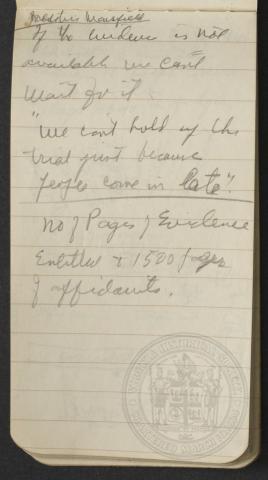 If the evidence is not
available we can't
wait for it
"We can't hold up this
trial just because
people come in late".
No of Pages of Evidence
Entitled + 1500 pages
of affidavits.